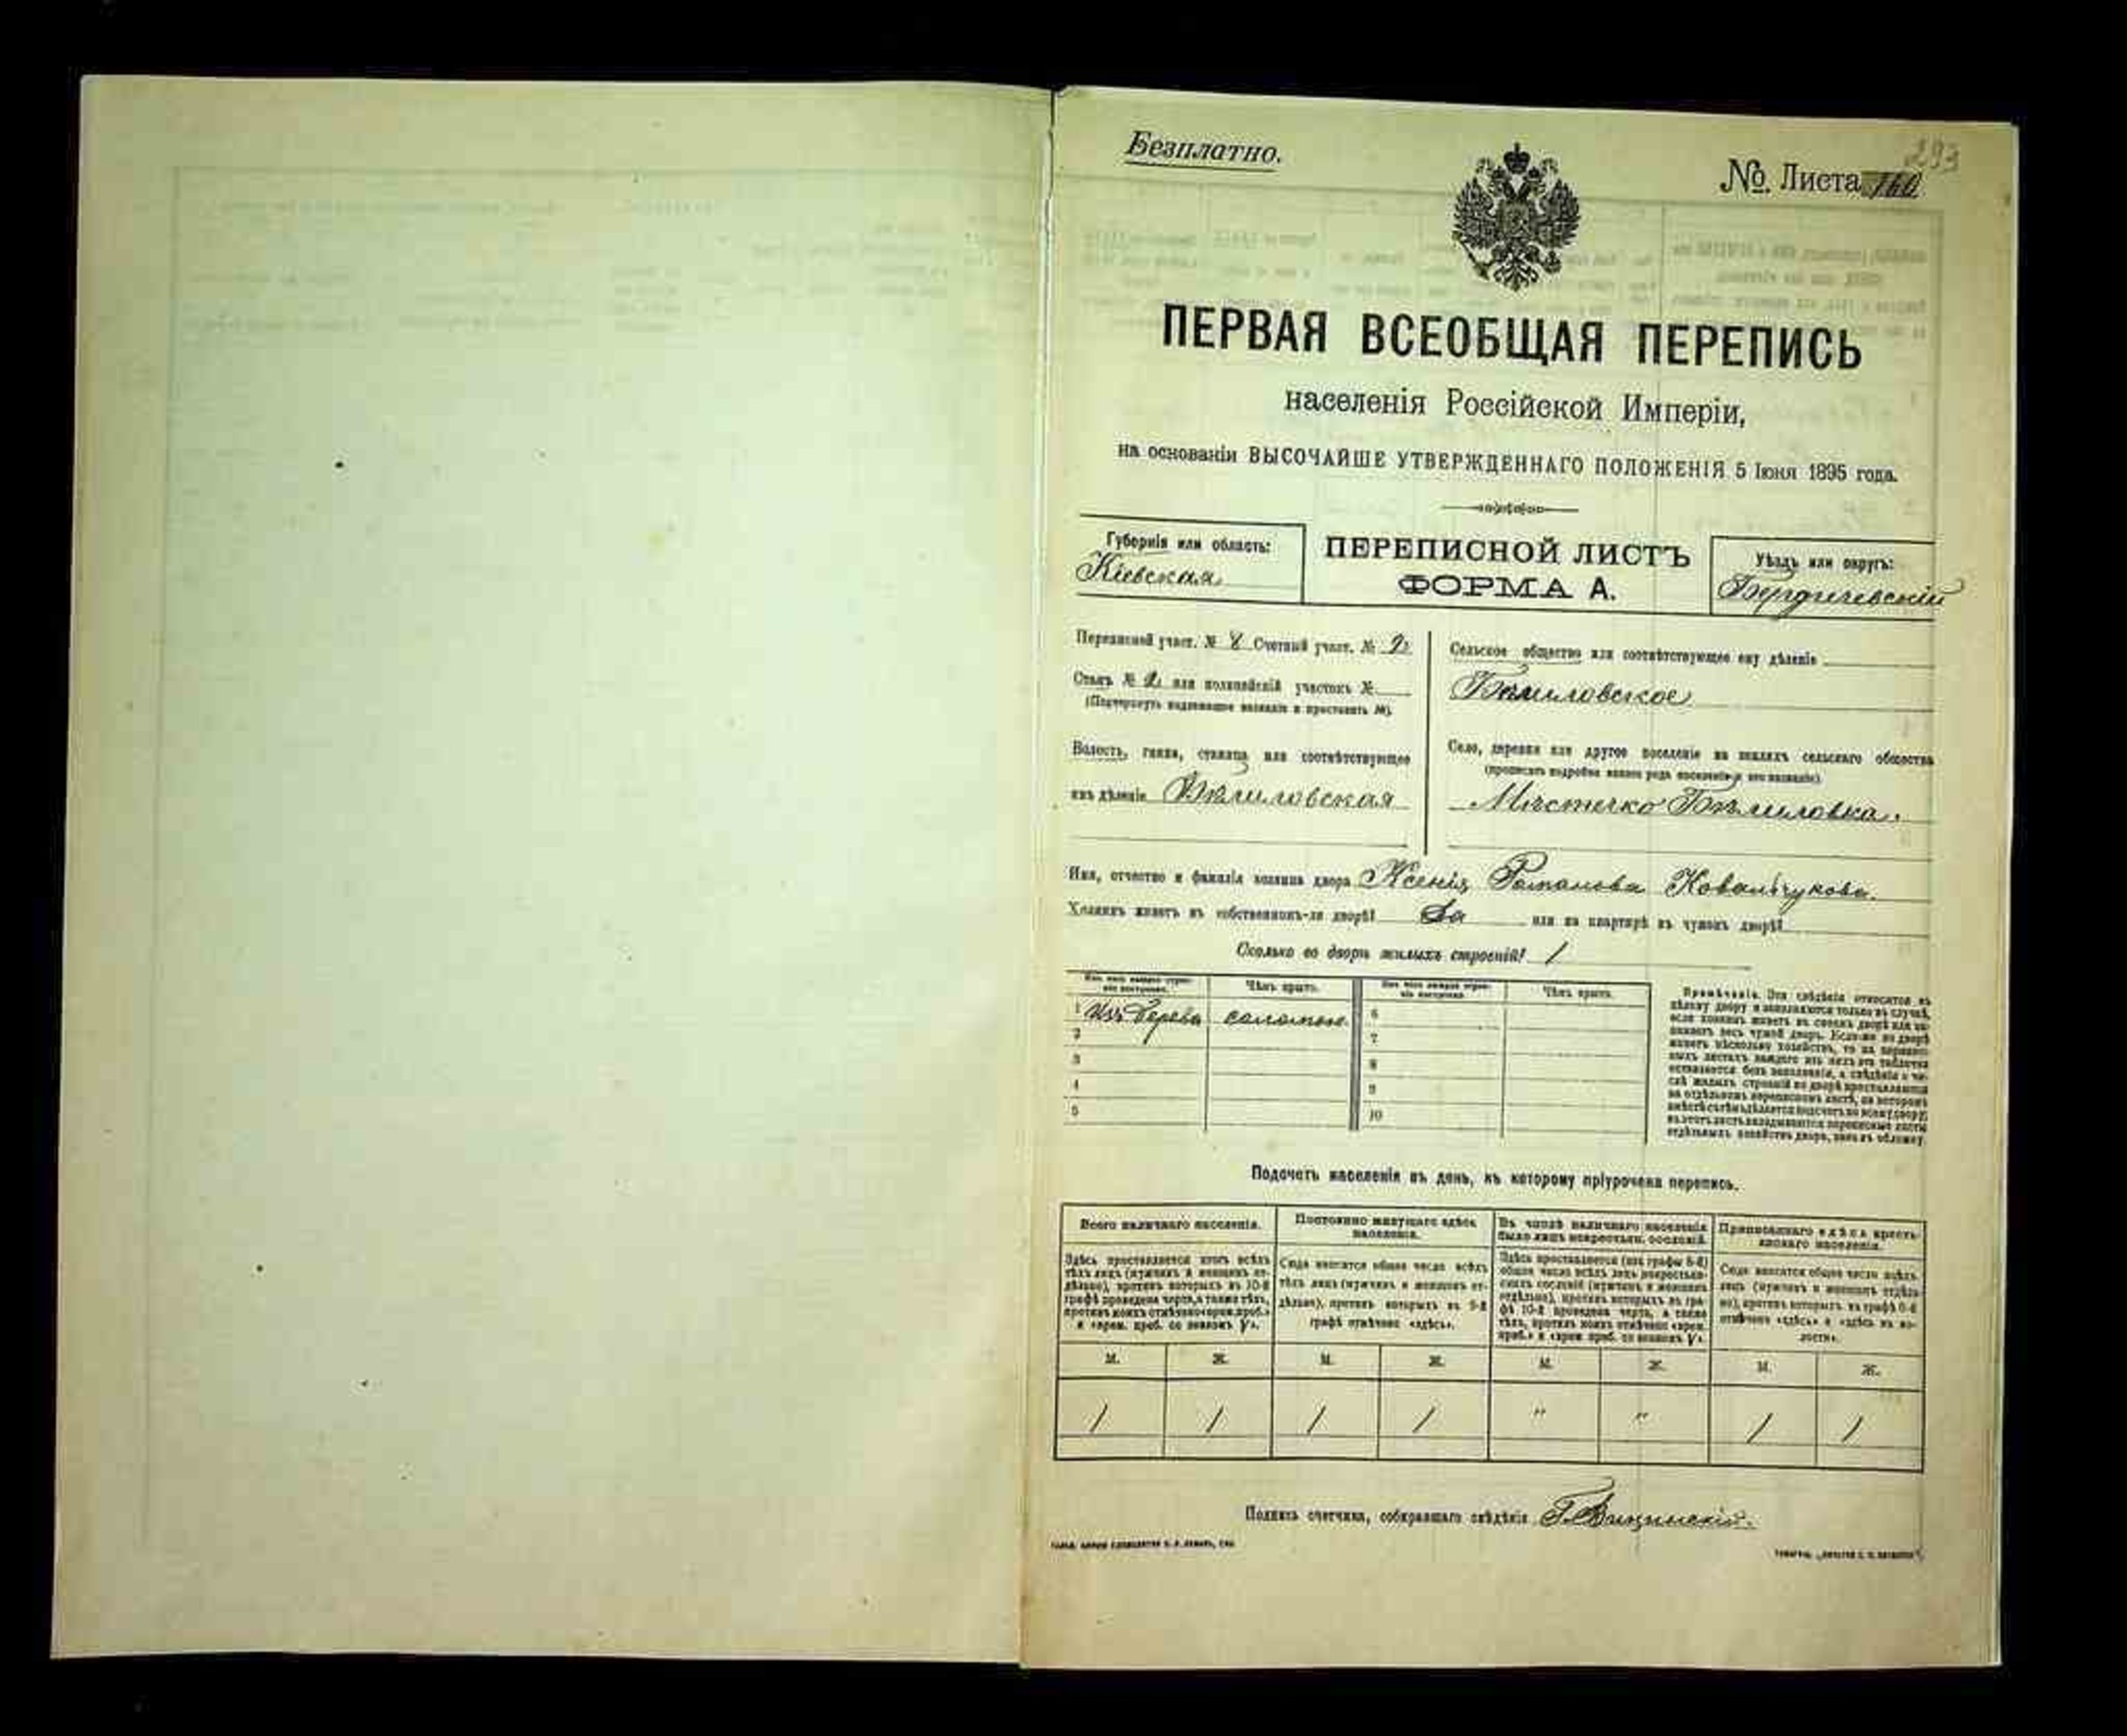 Безплатно.
293
№ Листа 160
ПЕРВАЯ ВСЕОБЩАЯ ПЕРЕПИСЬ
населенія Россійской Имперіи,
на основаніи ВЫСОЧАЙШЕ УТВЕРЖДЕННАГО ПОЛОЖЕНІЯ 5 Іюня 1895 года.
Губернія или область:
Кіевская
ПЕРЕПИСНОЙ ЛИСТЪ
ФОРМА А.
Уѣздъ или округъ:
Бердичевскій
Переписной участ. № 8 Счетный участ. № 2
Станъ № 2 или полицейскій участокъ №
(Подчеркнуть надлежащее названіе и проставить №).
Волость, гмина, станица или соотвѣтствующее
имъ дѣленіе Бѣлиловская
Сельское общество или соотвѣтствующее ему дѣленіе
Бѣлиловское
Село, деревня или другое поселеніе на земляхъ сельскаго общества
(прописать подробно какого рода поселеніе и его названіе).
Мѣстечко Бѣлиловка.
Имя, отчество и фамилія хозяина двора Ксенія Романова Ковальчукова.
Хозяинъ живетъ въ собственномъ-ли дворѣ? Да или на квартирѣ въ чужомъ дворѣ?
Сколько во дворѣ жилыхъ строеній? 1
Изъ чего каждое строеніе построено. Чѣмъ крыто. Изъ чего каждое строеніе построено. Чѣмъ крыто.
1 Изъ дерева соломою 6
2 7
3 8
4 9
5 10
Примѣчаніе. Эти свѣдѣнія относятся къ
цѣлому двору и заполняются только въ случаѣ,
если хозяинъ живетъ въ своемъ дворѣ или за-
нимаетъ весь чужой дворъ. Если-же во дворѣ
живетъ нѣсколько хозяйствъ, то на перепис-
ныхъ листахъ каждаго изъ нихъ эта табличка
оставляется безъ заполненія, а свѣдѣнія о чи-
слѣ жилыхъ строеній во дворѣ проставляются
на отдѣльномъ переписномъ листѣ, на которомъ
вмѣстѣ съ тѣмъ дѣлается подсчетъ по всему двору;
въ этотъ листъ вкладываются переписные листы
отдѣльныхъ хозяйствъ двора, какъ въ обложку.
Подсчетъ населенія въ день, къ которому пріурочена перепись.
Всего наличнаго населенія.
Здѣсь проставляется итогъ всѣхъ
тѣхъ лицъ (мужчинъ и женщинъ от-
дѣльно), противъ которыхъ въ 10-й
графѣ проведена черта, а также тѣхъ,
противъ коихъ отмѣчено «врем. проб.»
и «врем. проб. со знакомъ V».
Постоянно живущаго здѣсь
населенія.
Сюда вносится общее число всѣхъ
тѣхъ лицъ (мужчинъ и женщинъ от-
дѣльно), противъ которыхъ въ 9-й
графѣ отмѣчено «здѣсь».
Въ числѣ наличнаго населенія
было лицъ некрестьян. сословій.
Здѣсь проставляется (изъ графы 8-й)
общее число всѣхъ лицъ некрестьян-
скихъ сословій (мужчинъ и женщинъ
отдѣльно), противъ которыхъ въ гра-
фѣ 10-й проведена черта, а также
тѣхъ, противъ коихъ отмѣчено «врем.
проб.» и «врем. проб. со знакомъ V».
Приписаннаго здѣсь кресть-
янскаго населенія.
Сюда вносится общее число всѣхъ
лицъ (мужчинъ и женщинъ отдѣль-
но), противъ которыхъ въ графѣ 8-й
отмѣчено «здѣсь» и «здѣсь въ во-
лости».
М. Ж. М. Ж. М. Ж. М. Ж.
1 1 1 1 " " 1 1
Подпись счетчика, собиравшаго свѣдѣнія